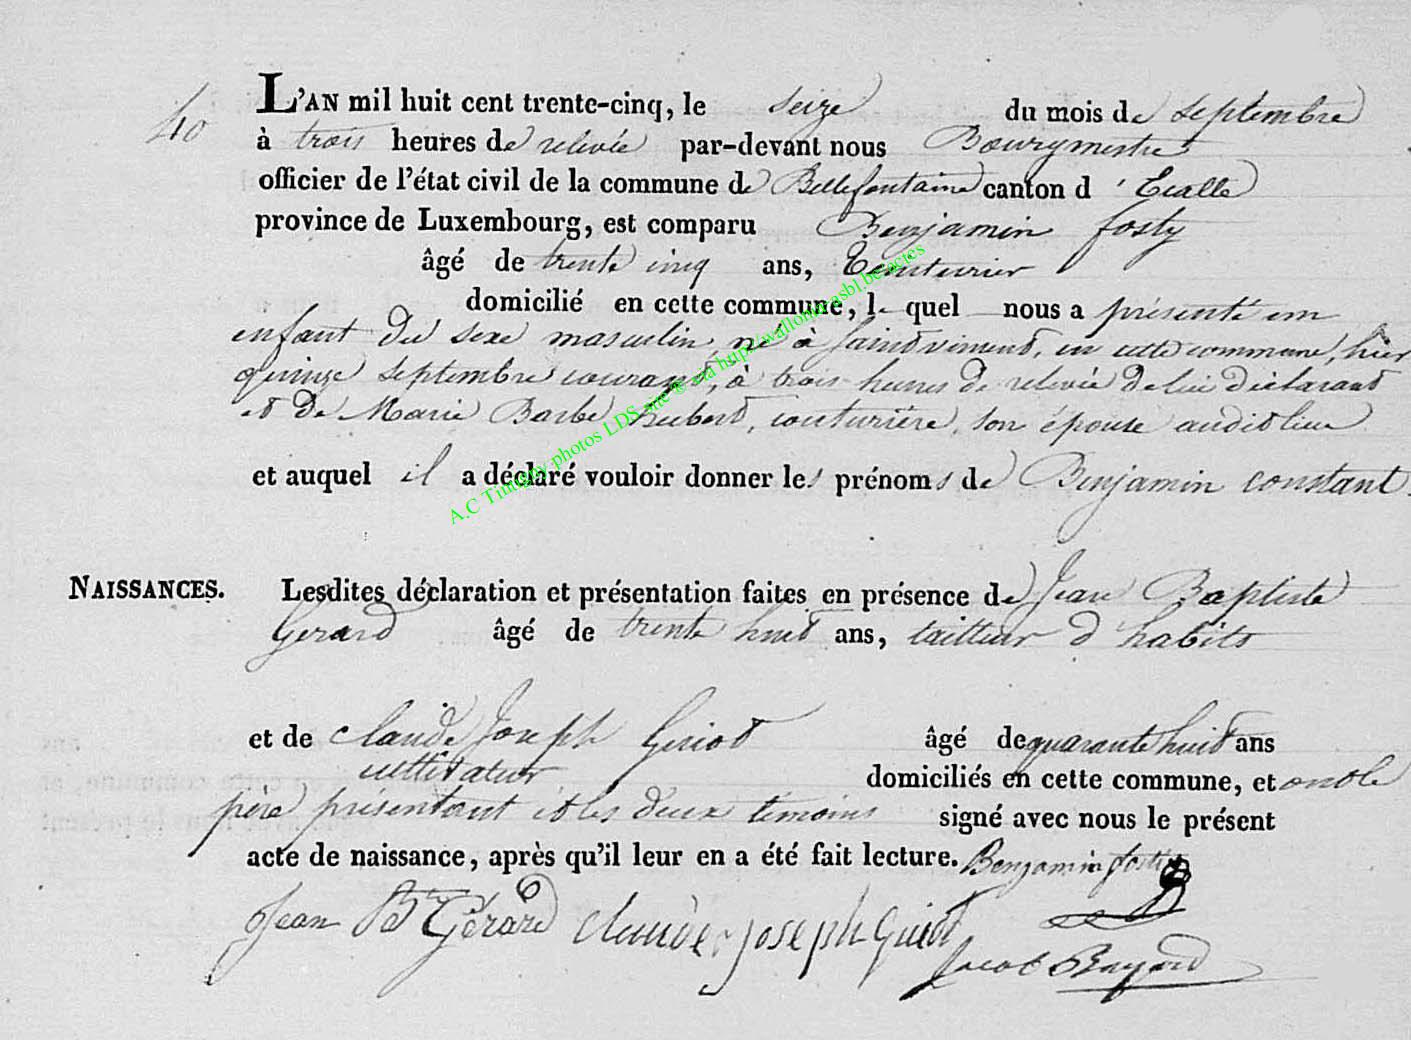 40
L'AN mil huit cent trente-cinq, le seize du mois de septembre
à trois heures de relevée par-devant nous Bourgmestre
officier de l'état civil de la commune de Bellefontaine canton d'Etalle
province de Luxembourg, est comparu Benjamin fosty
âgé de trente cinq ans, Couturier
domicilié en cette commune, le quel nous a présenté un
enfant du sexe masculin, né à Saintvincent, en cette commune, hier
quinze septembre courant, à trois heures de relevée de lui déclarant
et de Marie Barbe hubert, couturière, son épouse audit lieu
et auquel il a déclaré vouloir donner les prénoms de Benjamin constant.
NAISSANCES. Lesdites déclaration et présentation faites en présence de Jean Baptiste
Gerard âgé de trente huit ans, tailleur d'habits
et de claude Joseph Giriot âgé de quarante huit ans
cultivateur domiciliés en cette commune, et ont le
père présentant et les deux témoins signé avec nous le présent
acte de naissance, après qu'il leur en a été fait lecture. Benjamin fosti
Jean Bte Gérard claude joseph Guiot
Jacob Bayard
A.C Tintigny photos LDS site @ via http://wallonia-asbl.be actes